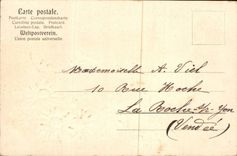 Carte postale.
Postkarte Correspondenzkarte
Cartolina postale. Postcard.
Levelezö-Lap. Briefkaart.
Weltpostverein.
Union postale universelle.
Mademoiselle A. Viel
10 Rue Hoche
La Roche-s-Yon
(Vendée)